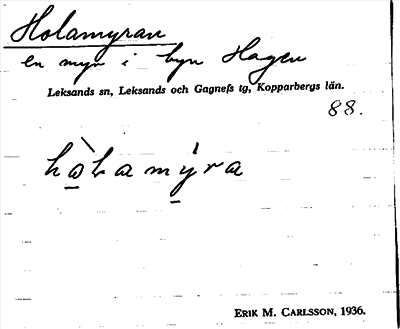 Holamyran
en myr i byn Hagen
Leksands sn, Leksands och Gagnefs tg, Kopparbergs län.
88.
hà̱lamý̱ra
ERIK M. CARLSSON, 1936.